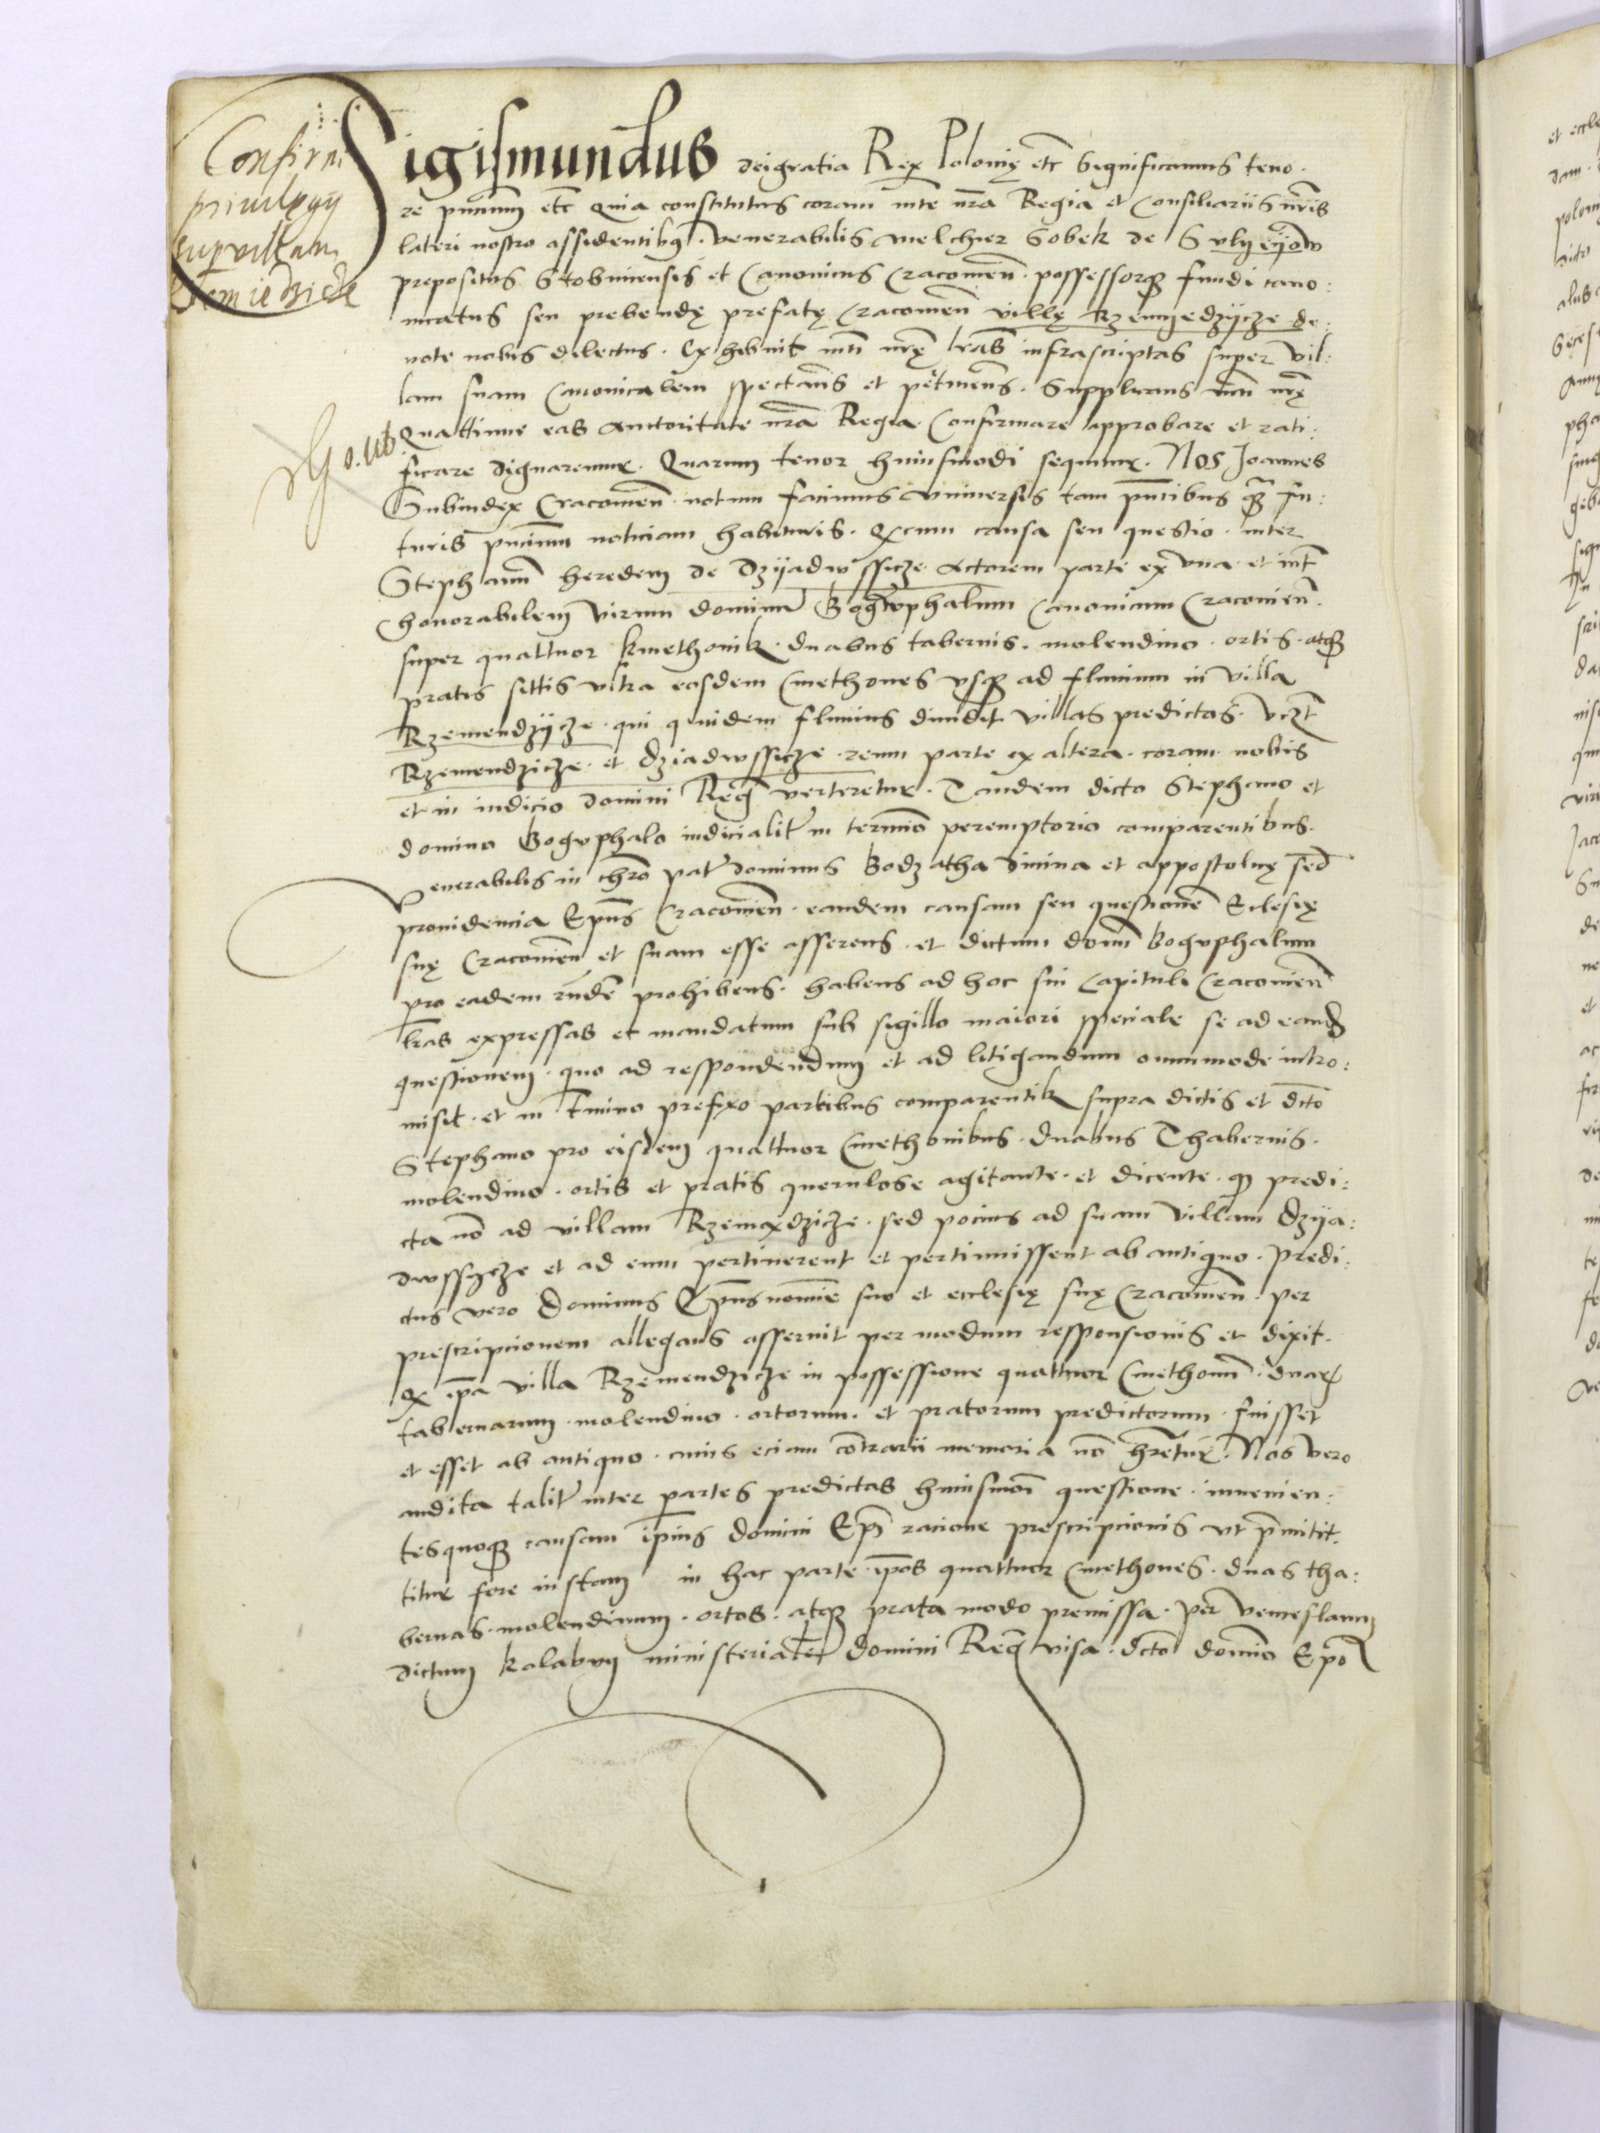 Confirm
privilegy
sup villam
Rzemiedzicze
Sigismundus dei gratia Rex Polonię etc̃ Significamus teno.
re pn̄tium etc̃ Quia constitutus coram mt̄e nr̄a Regia et Consiliariis nr̄is
lateri nostro assidentibꝫ. venerabilis Melchier Sobek de Sulyeyow
prepositus Stobnicensis et Canonicus Cracouien̄. possessorqꝫ fundi cano:
nicatus seu prebendę prefatę Cracouien̄ villę Rzemyedzycze de:
uote nobis dilectus. Exhibuit mt̄i nr̄ę lr̄as infrascriptas super vil:
lam suam Canonicalem spectan̄s et ptinen̄s. Supplicans mt̄i nr̄ę
Quattinus eas auctoritate nr̄a Regia Confirmare approbare et rati:
ficare dignaremur. Quarum tenor huiusmodi sequitur. Nos Joannes
Subiudex Cracouien̄. notum facimus vniuersis tam pn̄tibus qꝫ̄ fu:
turis pn̄tium noticiam habituris. Qꝫ cum causa seu questio inter
Stephanū heredem de Dzyadwssicze Actorem parte ex vna et int̄
honorabilem virum dominū Bogvphalum Canonicum Cracouien̄.
super quattuor kmethonibꝫ. duabus tabernis. molendino. ortis. atqꝫ
pratis sittis vltra eosdem Cmethones vsqꝫ ad fluuium in villa
Rzemendzycze. qui quidem fluuius diuidit villas predictas. vcz̄t
Rzemendzicze. et Dziadwssicze. reum parte ex altera. coram nobis
et in iudicio domini Reg̃ verteretur. Tandem dicto Stephano et
domino Bogvphalo iudicialit̄ in termīo peremptorio comparentibus.
Venerabilis in chr̄o pat̄ dominus Bodzatha diuina et appostolicę sed̄
prouidencia Ep̄us Cracouien̄. eandem causam seu questionē Ecclesię
suę Cracouien̄ et suam esse asserens. et dictum domī Bogvphalum
pro eadem rn̄dē prohibens. habens ad hoc sui Capituli Cracouien̄
lr̄as expressas et mandatum sub sigillo maiori speciale se ad eandꝫ
questionem. quo ad respondendum et ad litigandum omnimode intro:
misit. et in t̄mino prefixo partibus comparentibꝫ supra dictis et dc̄o
Stephano pro eisdem quattuor Cmethonibus. duabus Thabernis.
molendino. ortis et pratis querulose agitante. et dicente. qꝫ predi:
cta nō ad villam Rzemędzicze. sed pocius ad suam villam Dzya:
dwssycze et ad eum pertinerent et pertinuissent ab antiquo. Predi:
ctus vero Dominus Ep̄us nomīe suo et ecclesię suę Cracouien̄. per
prescripcionem allegans asseruit per modum responsionis et dixit.
Qꝫ ip̄a villa Rzemendzicze in possessione quattuor Cmethonū. duarꝫ
tabernarum. molendino. ortorum. et pratorum predictorum. fuisset
et esset ab antiquo. cuius eciam cōtrarii memoria nō hr̄etur. Nos vero
audita talit̄ inter partes predictas huiusmōi questione. inuenien:
tesquoqꝫ causam ip̄ius domini Ep̄i racione prescripcionis vt p̄mitit.
titur fore iustam in hac parte. ip̄os quattuor Cmethones. duas tha:
bernas. molendinum. ortos. atqꝫ prata modo premissa. per Venceslaum
dictum kolabvy ministerialem domini Reg̃ visa. dc̄o domīo Ep̄o